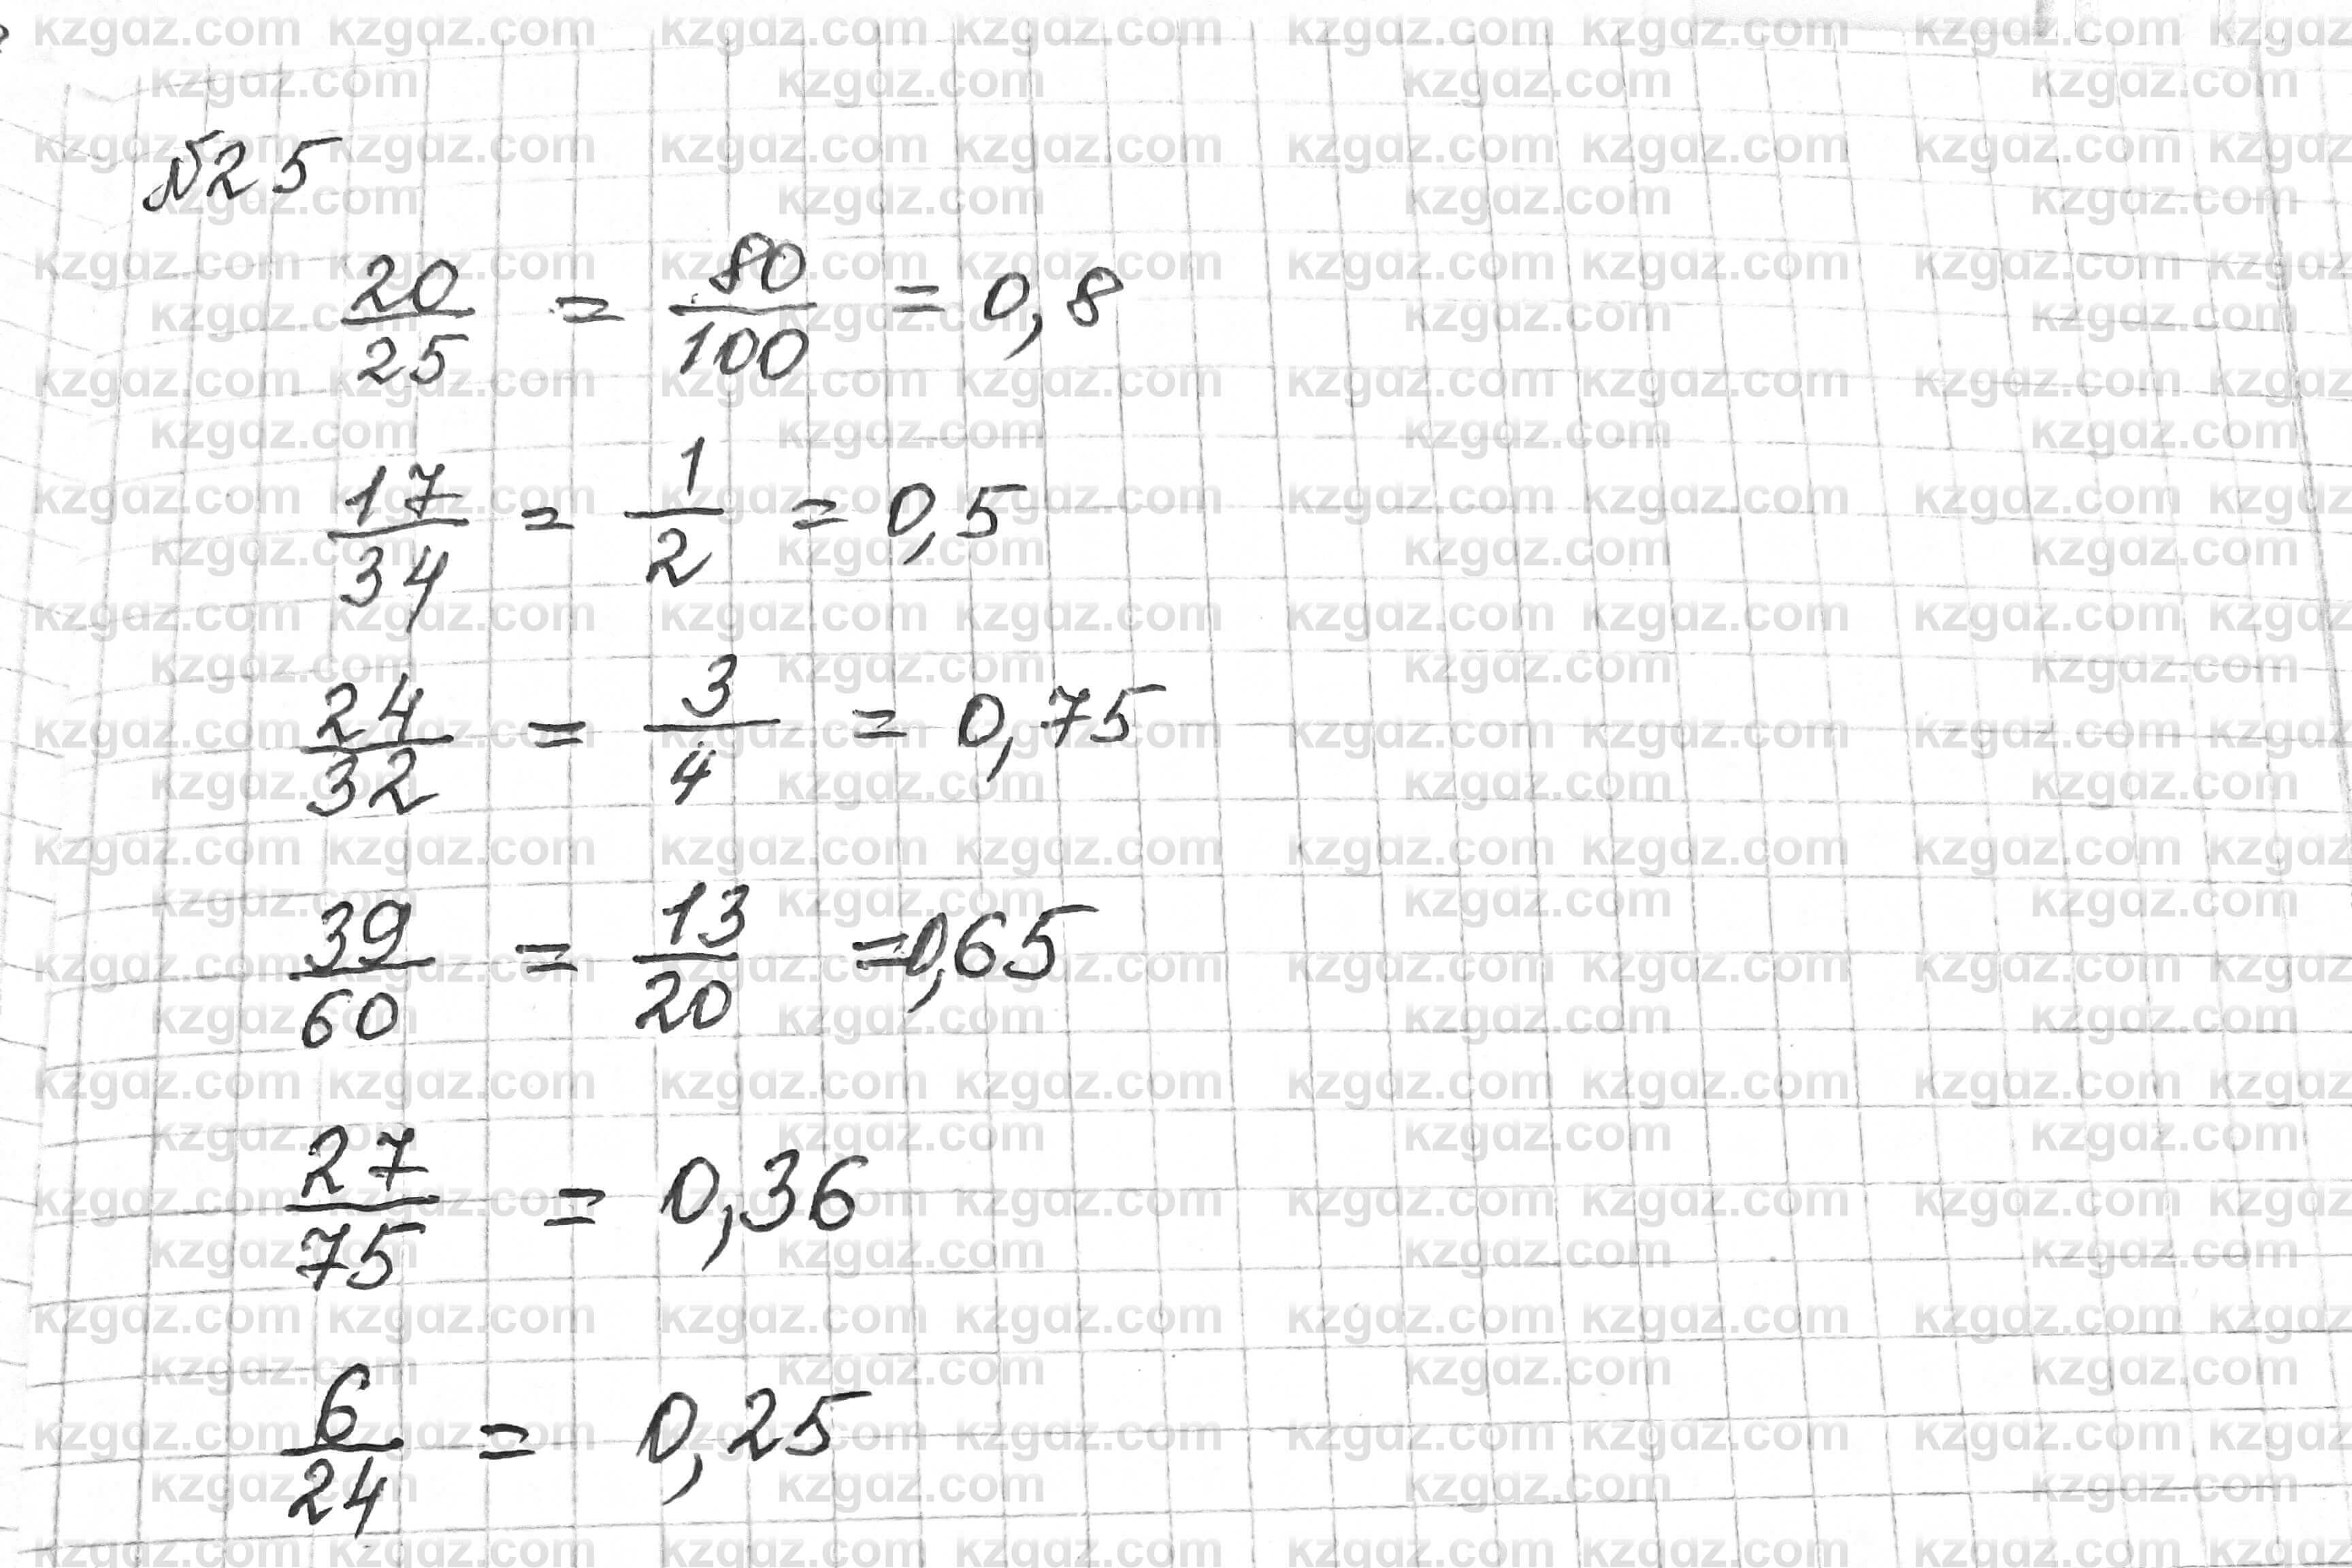 №25
20/25 = 80/100 = 0,8
17/34 = 1/2 = 0,5
24/32 = 3/4 = 0,75
39/60 = 13/20 = 0,65
27/75 = 0,36
6/24 = 0,25
kzgaz.com